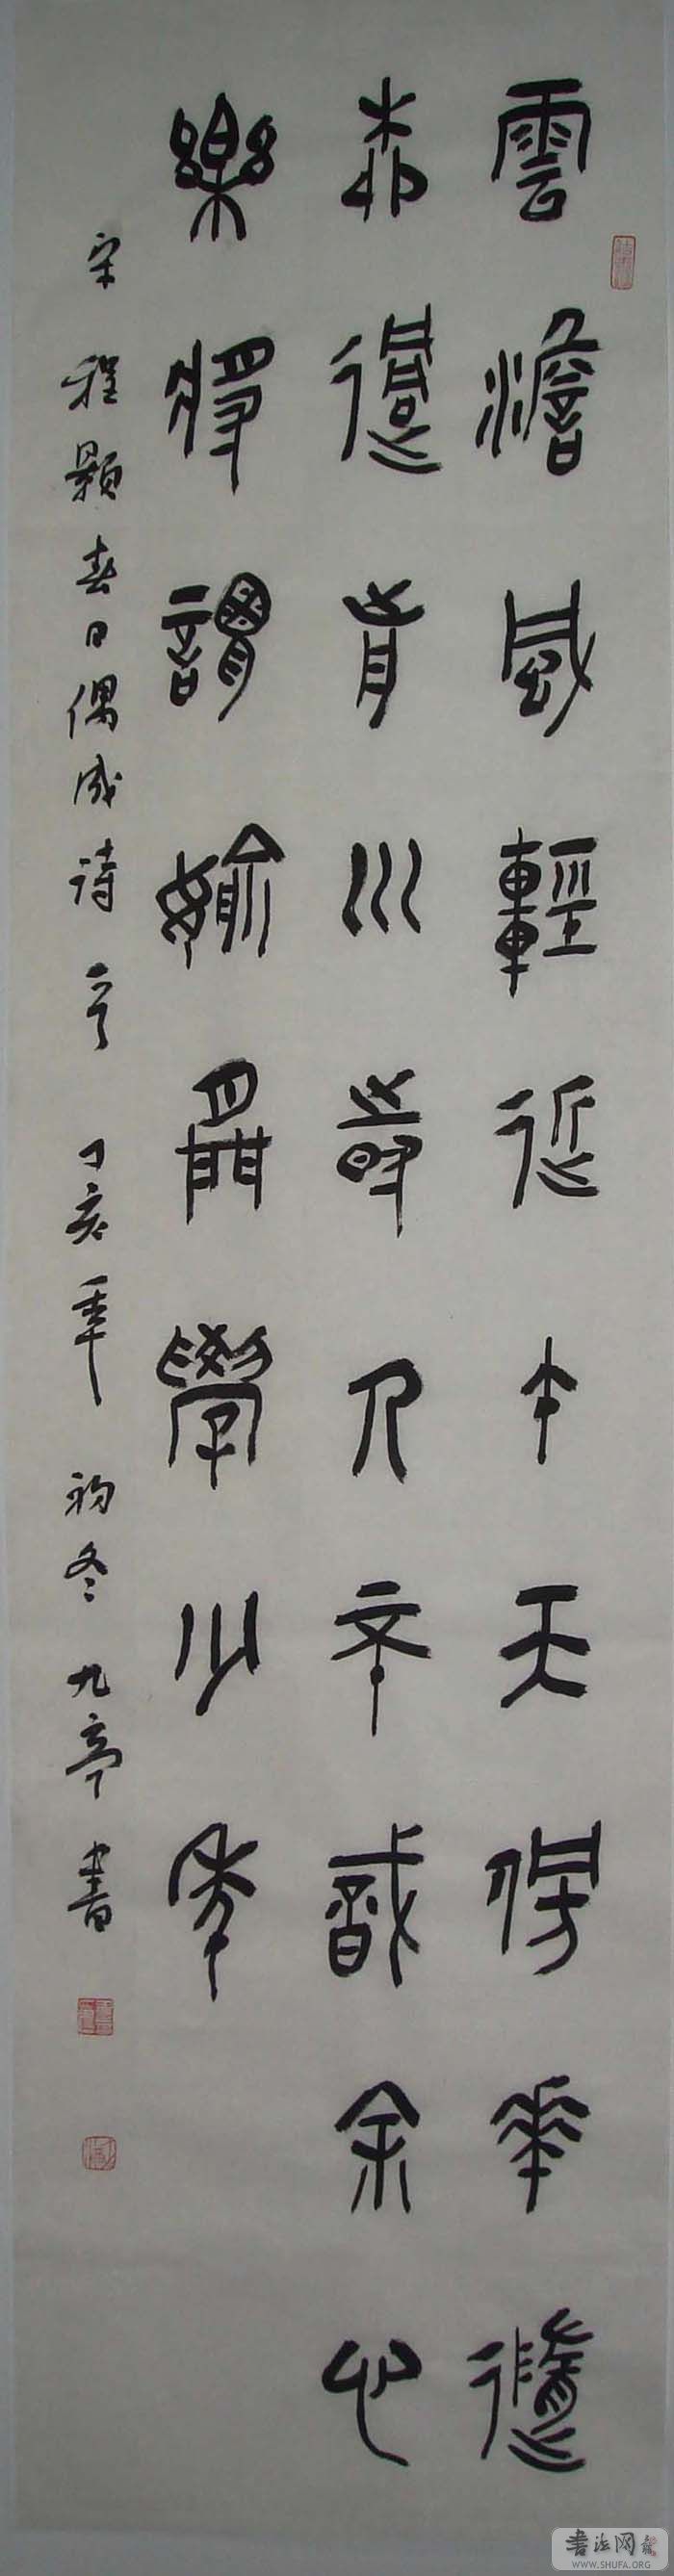 雲澹風輕近午天傍花隨
柳過前川時人不識余心
樂將謂媮閒學少年
宋程顥春日偶成诗一首 丁亥年初冬九亭書
書法网
WWW.SHUFA.ORG